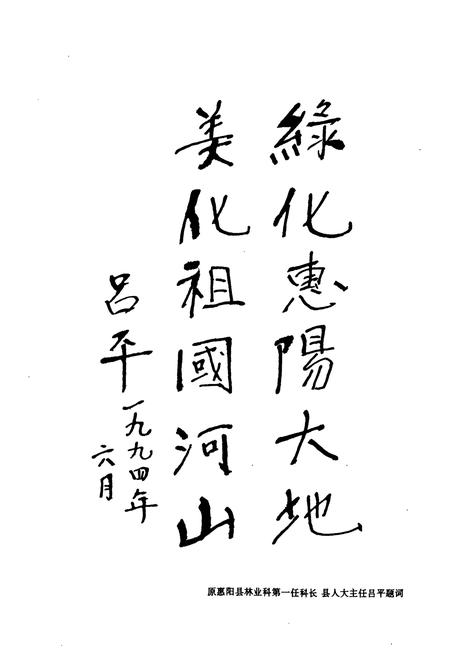 綠化惠陽大地
美化祖國河山
吕平
一九九四年
六月
原惠阳县林业科第一任科长 县人大主任吕平题词